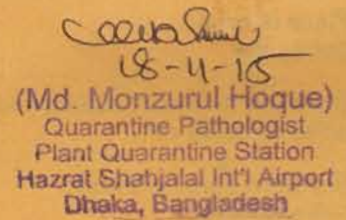 18-11-15
(Md. Monzurul Hoque)
Quarantine Pathologist
Plant Quarantine Station
Hazrat Shahjalal Int'l Airport
Dhaka, Bangladesh